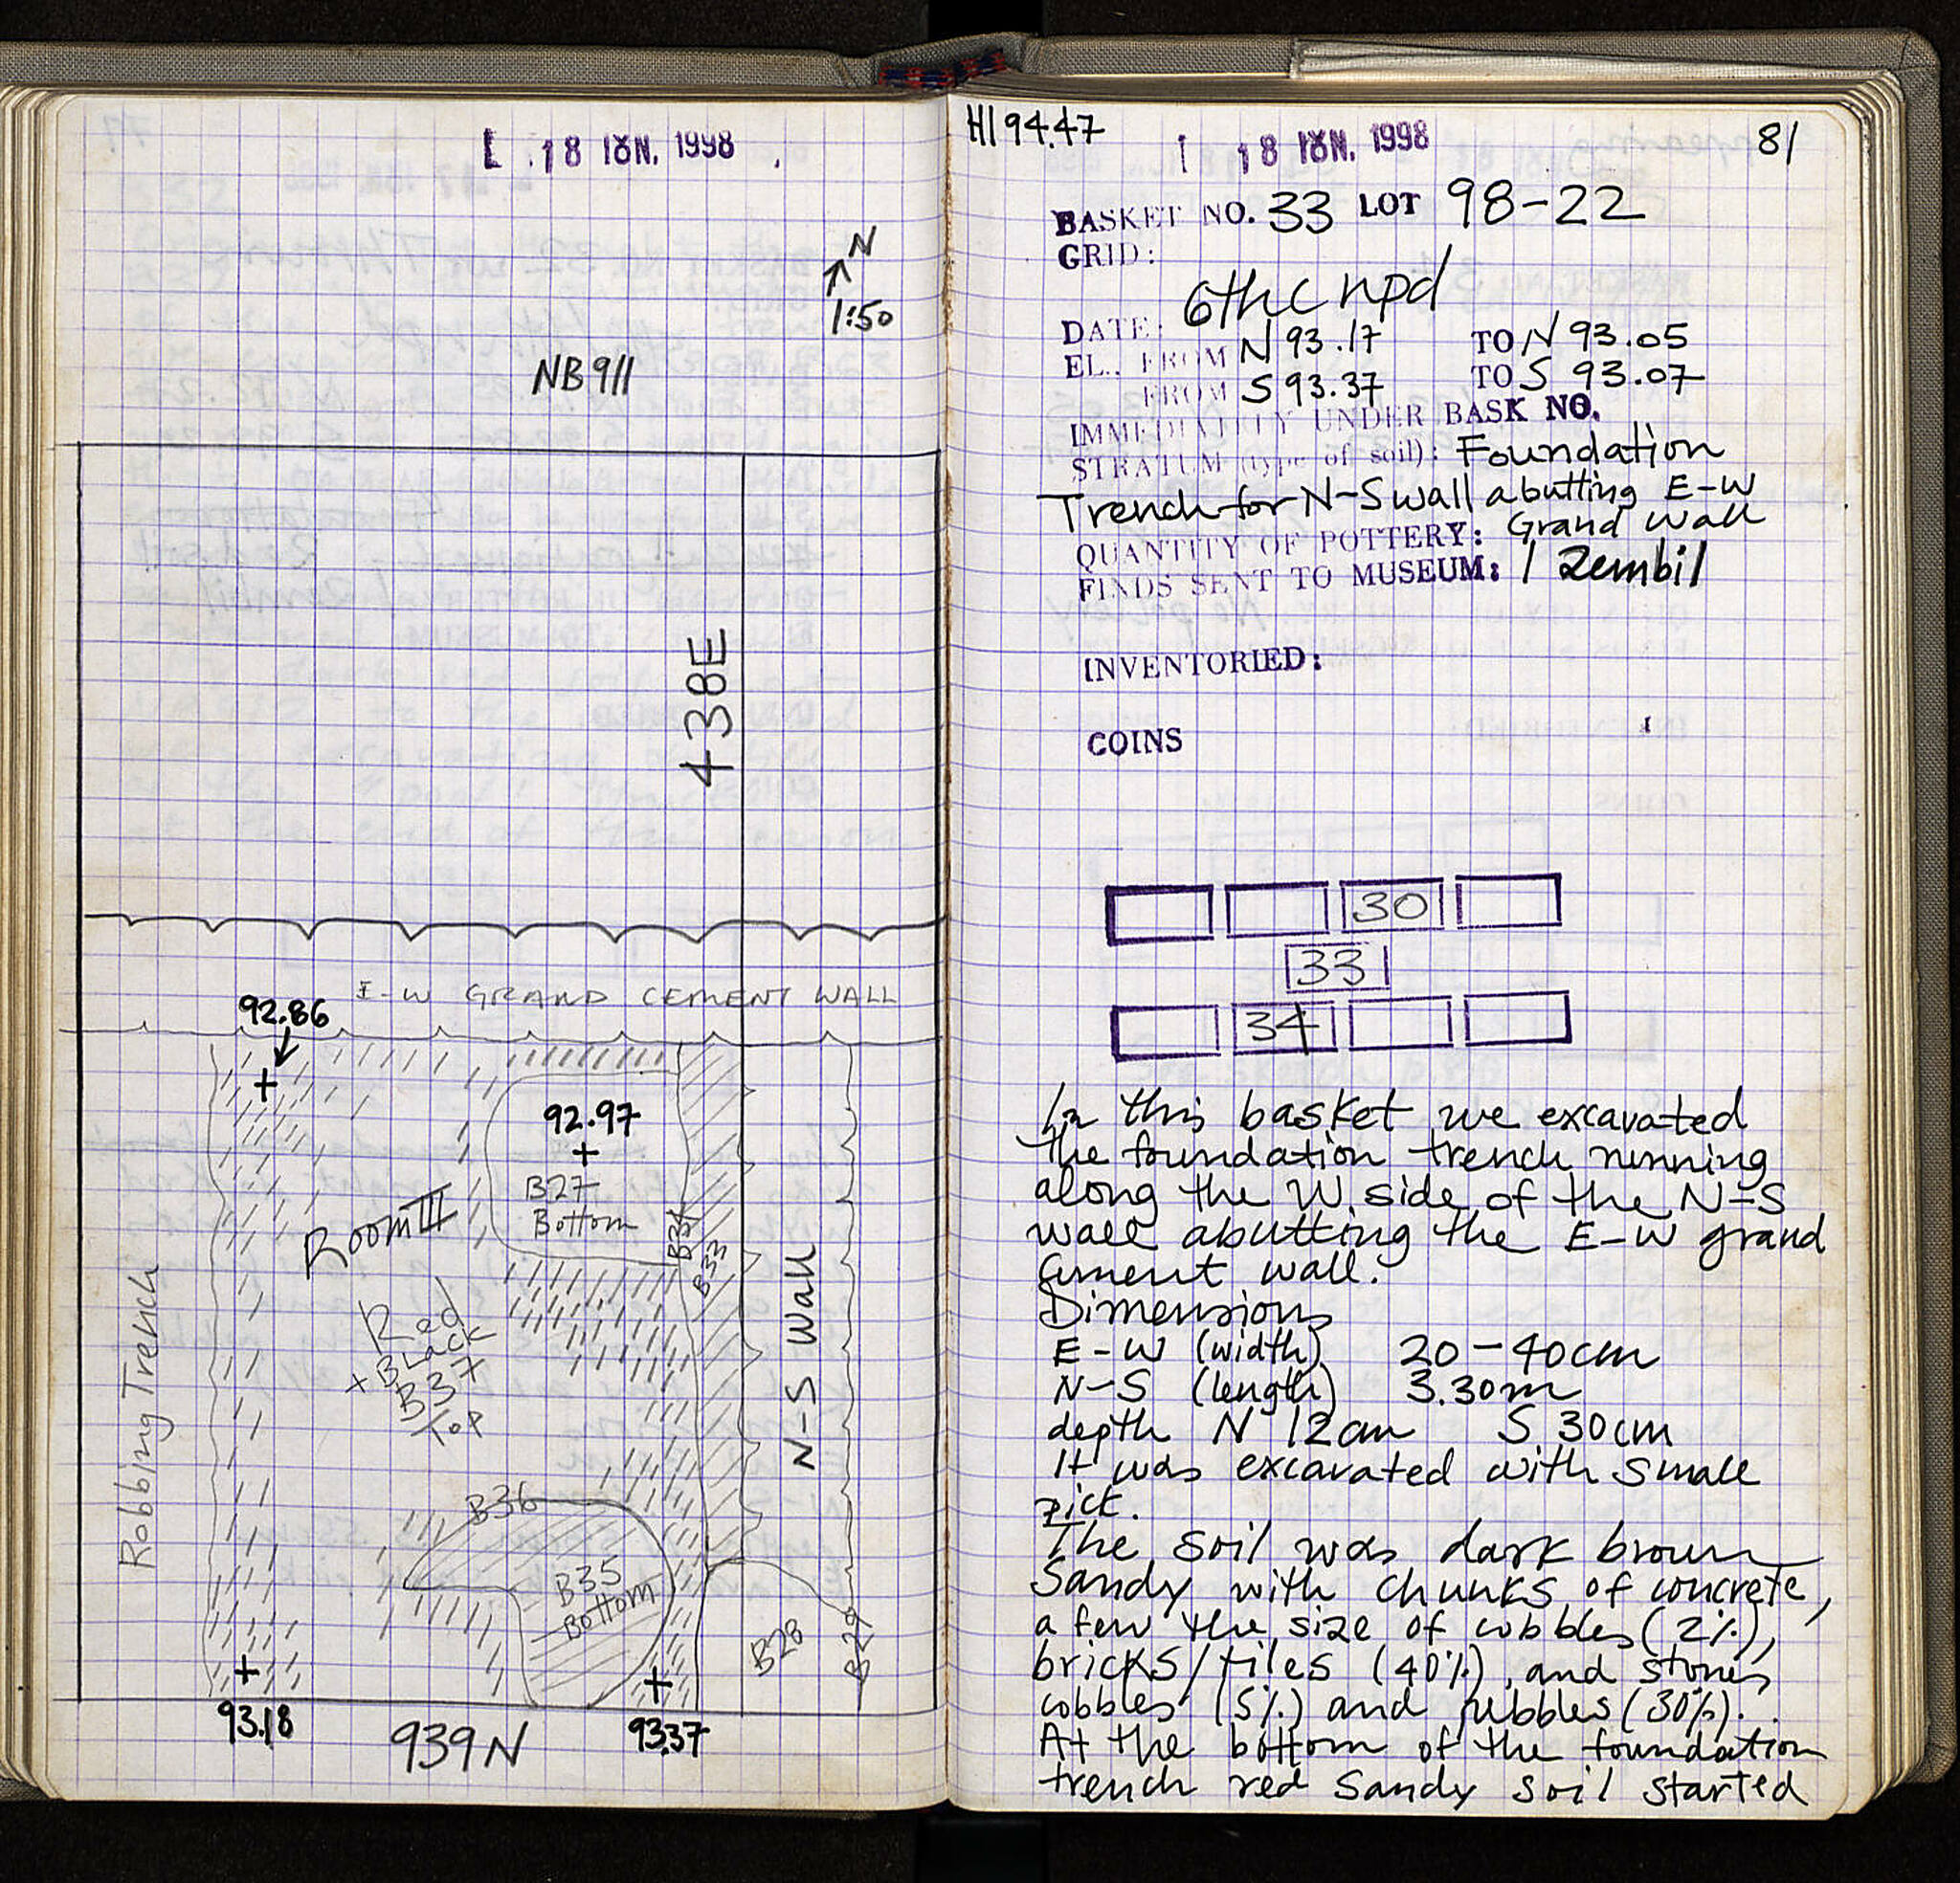 18 ΙΟΥΝ. 1998
N
1:50
NB911
438E
E-W GRAND CEMENT WALL
92.86
92.97
B27
Bottom
Room III
B34
B33
N-S Wall
Robbing Trench
Red
+ Black
B37
Top
B36
B35
Bottom
B28
B29
93.18
939N
93.37
HI 94.47
18 ΙΟΥΝ. 1998
81
BASKET NO. 33 LOT 98-22
GRID:
DATE: 6thc npd
EL., FROM N 93.17 TO N 93.05
FROM S 93.37 TO S 93.07
IMMEDIATELY UNDER BASK NO.
STRATUM (type of soil): Foundation
Trench for N-S wall abutting E-W
Grand Wall
QUANTITY OF POTTERY:
FINDS SENT TO MUSEUM: 1 Zembil
INVENTORIED:
COINS
30
33
34
In this basket we excavated
the foundation trench running
along the W. side of the N-S
wall abutting the E-W grand
cement wall.
Dimensions
E-W (width) 20-40cm
N-S (length) 3.30m
depth N 12cm S 30cm
It was excavated with small
pick.
The soil was dark brown
sandy with chunks of concrete,
a few the size of cobbles (2%),
bricks/tiles (40%), and stones,
cobbles (5%) and pebbles (30%).
At the bottom of the foundation
trench red sandy soil started